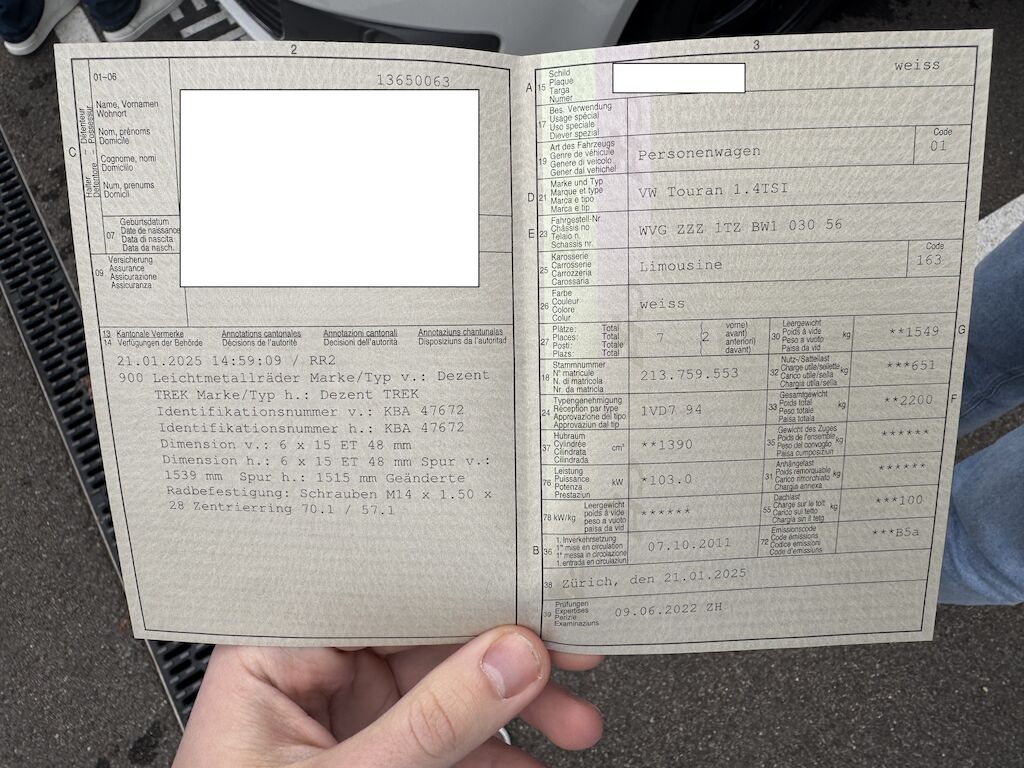 2
01-06
13650063
C
Halter – Détenteur
Detentore – Possessur
Name, Vornamen
Wohnort
Nom, prénoms
Domicile
Cognome, nomi
Domicilio
Num, prenums
Domicil
07
Geburtsdatum
Date de naissance
Data di nascita
Data da nasch.
09
Versicherung
Assurance
Assicurazione
Assicuranza
13
14
Kantonale Vermerke
Verfügungen der Behörde
Annotations cantonales
Décisions de l'autorité
Annotazioni cantonali
Decisioni dell'autorità
Annotaziuns chantunalas
Disposiziuns da l'autoritad
21.01.2025 14:59:09 / RR2
900 Leichtmetallräder Marke/Typ v.: Dezent
TREK Marke/Typ h.: Dezent TREK
Identifikationsnummer v.: KBA 47672
Identifikationsnummer h.: KBA 47672
Dimension v.: 6 x 15 ET 48 mm
Dimension h.: 6 x 15 ET 48 mm Spur v.:
1539 mm Spur h.: 1515 mm Geänderte
Radbefestigung: Schrauben M14 x 1.50 x
28 Zentrierring 70.1 / 57.1
3
A
15
Schild
Plaque
Targa
Numer
weiss
17
Bes. Verwendung
Usage spécial
Uso speciale
Diever spezial
19
Art des Fahrzeugs
Genre de véhicule
Genere di veicolo
Gener dal vehichel
Personenwagen
Code
01
D
21
Marke und Typ
Marque et type
Marca e tipo
Marca e tip
VW Touran 1.4TSI
E
23
Fahrgestell-Nr.
Châssis no
Telaio n.
Schassis nr.
WVG ZZZ 1TZ BW1 030 56
25
Karosserie
Carrosserie
Carrozzeria
Carossaria
Limousine
Code
163
26
Farbe
Couleur
Colore
Colur
weiss
27
Plätze: Total
Places: Total
Posti: Totale
Plazs: Total
7
(2
vorne)
avant)
anteriori)
davant)
30
Leergewicht
Poids à vide
Peso a vuoto
Paisa da vid
kg
**1549
G
18
Stammnummer
N° matricule
N. di matricola
Nr. da matricla
213.759.553
32
Nutz-/Sattellast
Charge utile/sellette
Carico utile/sella
Chargia utila/sella
kg
***651
24
Typengenehmigung
Réception par type
Approvazione del tipo
Approvaziun dal tip
1VD7 94
33
Gesamtgewicht
Poids total
Peso totale
Paisa totala
kg
**2200
F
37
Hubraum
Cylindrée
Cilindrata
Cilindrada
cm³
**1390
35
Gewicht des Zuges
Poids de l'ensemble
Peso del convoglio
Paisa cumposiziun
kg
******
76
Leistung
Puissance
Potenza
Prestaziun
kW
*103.0
31
Anhängelast
Poids remorquable
Carico rimorchiato
Chargia annexa
kg
******
78 kW/kg
Leergewicht
poids à vide
peso a vuoto
paisa da vid
******
55
Dachlast
Charge sur le toit
Carico sul tetto
Chargia sin il tetg
kg
***100
B
36
1. Inverkehrsetzung
1re mise en circulation
1a messa in circolazione
1. entrada en circulaziun
07.10.2011
72
Emissionscode
Code émissions
Codice emissioni
Code d'emissiuns
***B5a
38
Zürich, den 21.01.2025
39
Prüfungen
Expertises
Perizie
Examinaziuns
09.06.2022 ZH